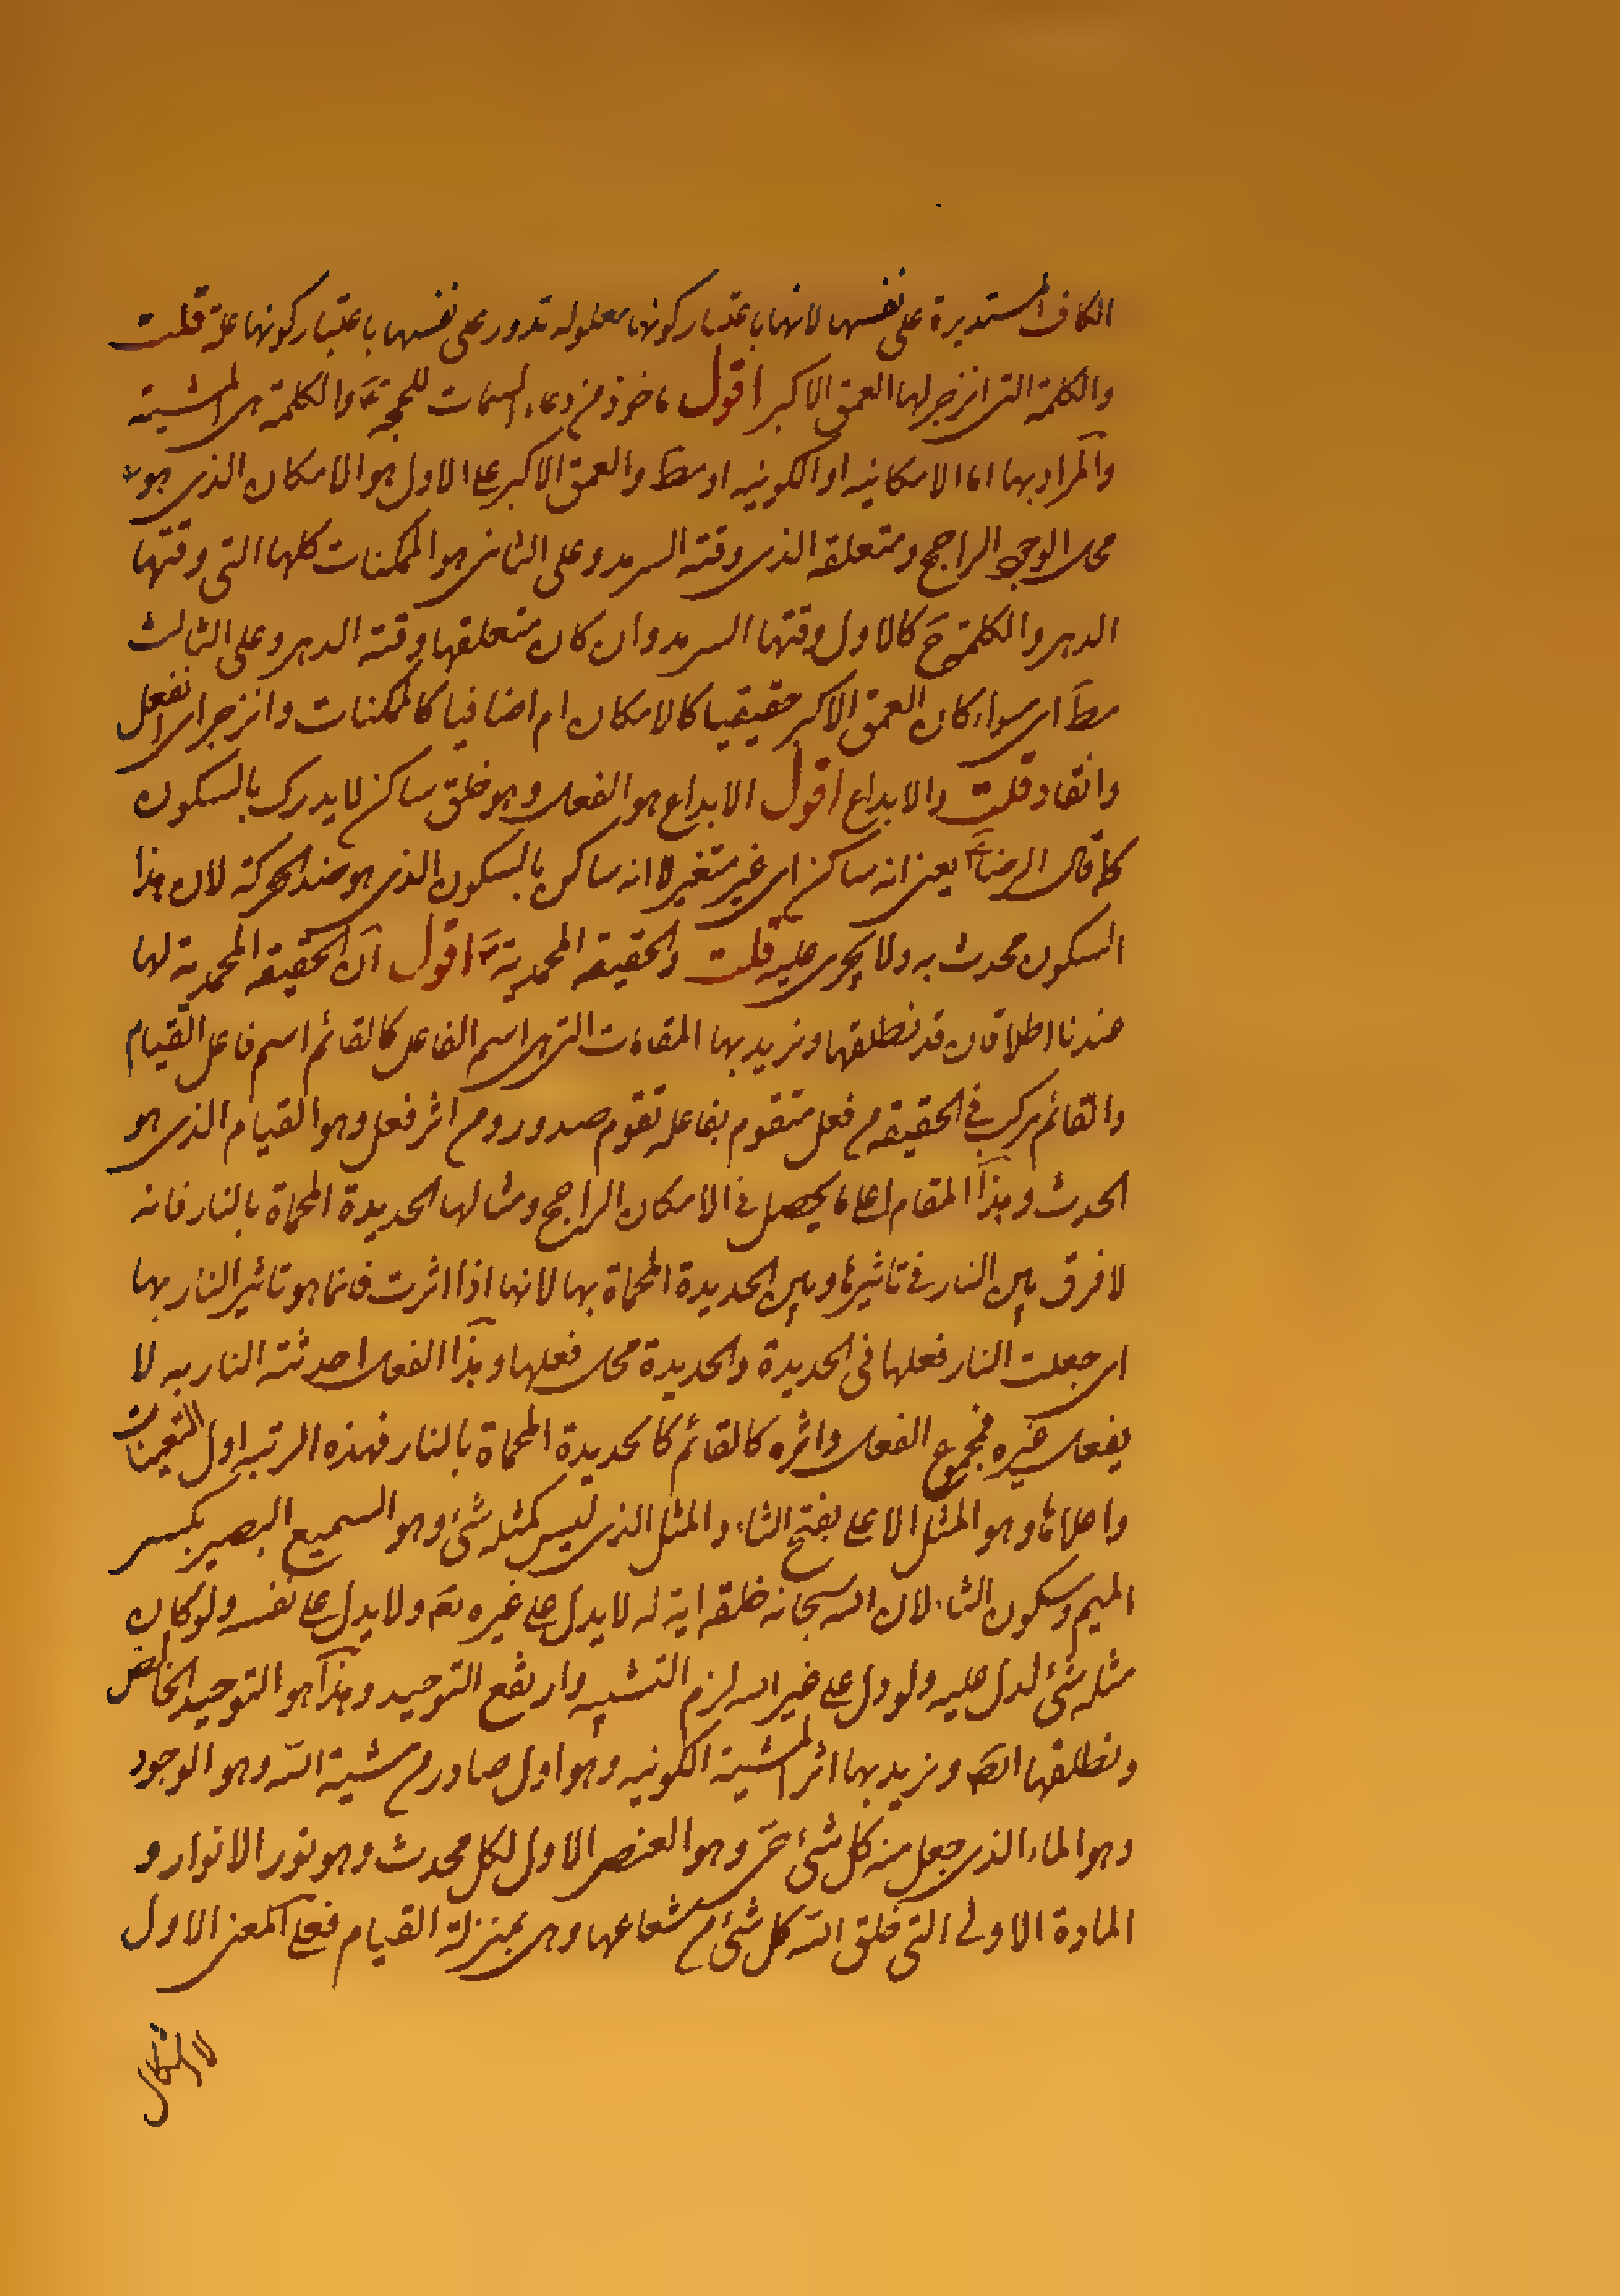 الكاف المستديرة على نفسها لانها باعتبار كونها معلوله تدور على نفسها باعتبار كونها علة قلت
والكلمة التى انزجر لها العمق الاكبر اقول ماخوذ من دعاء السمات للحجة ع والكلمة هى المشية
والمراد بها اما الامكانيه او الكونيه او مط والعمق الاكبر على الاول هو الامكان الذى هو
محل الوجود الراجح ومتعلقه الذى وقته السرمد وعلى الثانى هو الممكنات كلها التى وقتها
الدهر والكلمة ح كالاول وقتها السرمد وان كان متعلقها وقته الدهر وعلى الثالث
مط اى سواء كان العمق الاكبر حقيقيا كالامكان ام اضافيا كالممكنات وانزجر اى انفعل
وانقاد قلت والابداع اقول الابداع هو الفعل وهو خلق ساكن لا يدرك بالسكون
كما قال الرضا ع يعنى انه ساكن اى غير متغير لا انه ساكن بالسكون الذى هو ضد الحركة لان هذا
السكون محدث به ولا يجرى عليه قلت والحقيقه المحمدية ص اقول ان الحقيقه المحمدية لها
عندنا اطلاقان قد نطلقها ونريد بها المقامات التى هى اسم الفاعل كالقائم اسم فاعل القيام
والقائم مركب فى الحقيقه من فعل متقوم بفاعله تقوم صدور ومن اثر فعل وهو القيام الذى هو
الحدث وهذا المقام اعلى ما يحصل فى الامكان الراجح ومثالها الحديدة المحماة بالنار فانه
لا فرق بين النار فى تاثيرها وبين الحديدة المحماة بها لانها اذا اثرت فانما هو تاثير النار بها
اى جعلت النار فعلها فى الحديدة والحديدة محل فعلها وهذا الفعل احدثته النار به لا
بفعل غيره فمجموع الفعل واثره كالقائم كالحديدة المحماة بالنار فهذه الرتبه اول التعينات
واعلاها وهو المثل الاعلى بفتح الثاء والمثل الذى ليس كمثله شئ وهو السميع البصير بكسر
الميم وسكون الثاء لان الله سبحانه خلقه اية له لا يدل على غيره تع ولا يدل على نفسه ولو كان
مثله شئ لدل عليه ولو دل على غير الله لزم التشبيه وارتفع التوحيد وهذا هو التوحيد الخالص
ونطلقها ايض ونريد بها اثر المشية الكونيه وهو اول صادر من مشية الله وهو الوجود
وهو الماء الذى جعل منه كل شئ حى وهو العنصر الاول لكل محدث وهو نور الانوار و
المادة الاولى التى خلق الله كل شئ من شعاعها وهى بمنزلة القيام فعلى المعنى الاول